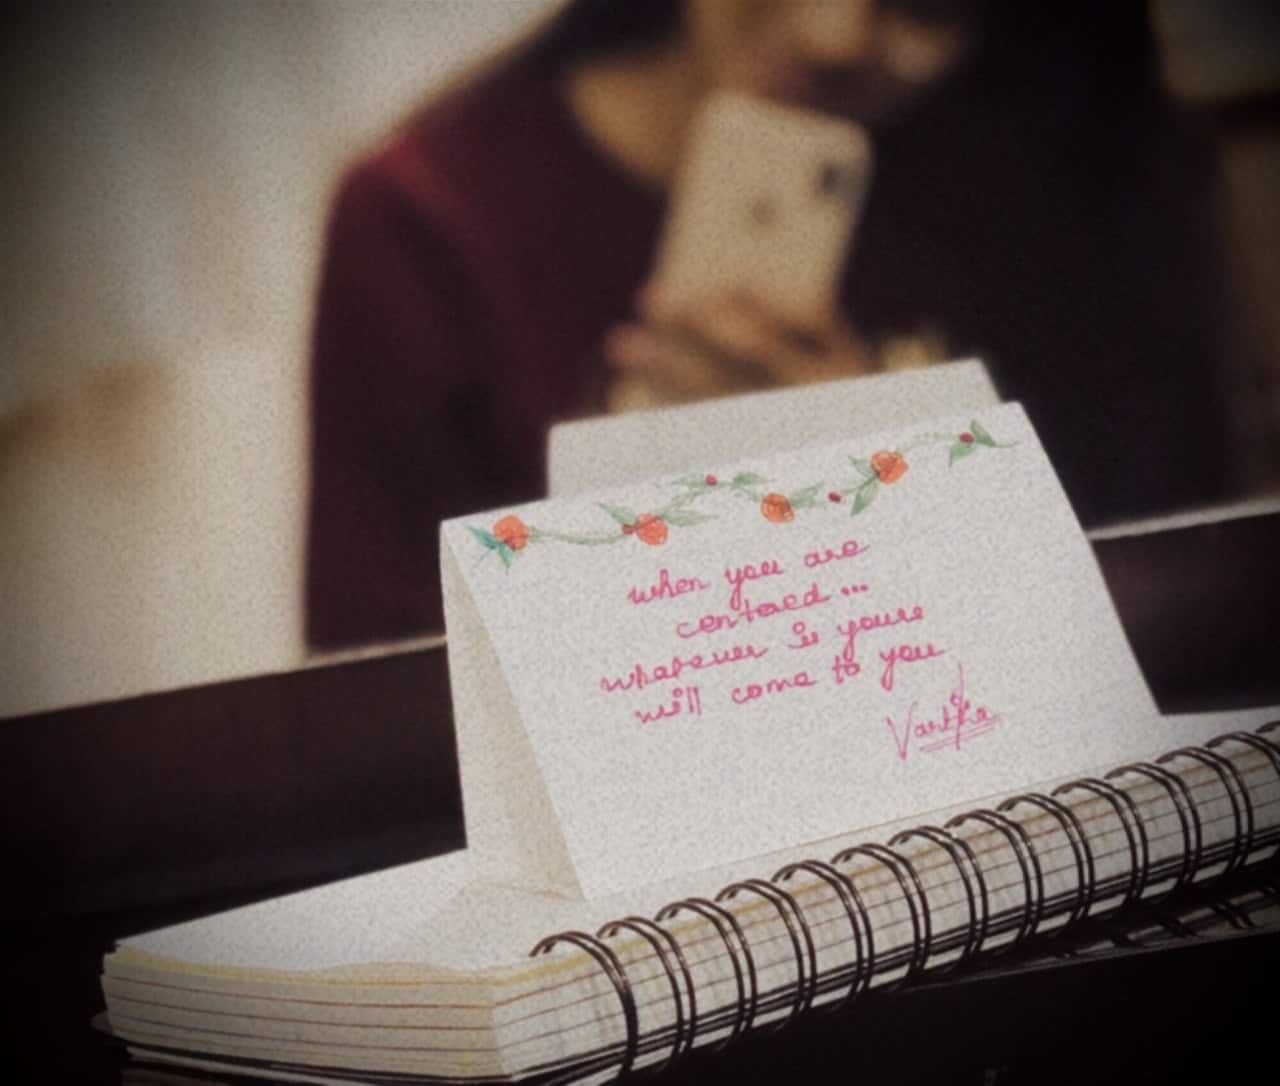 when you are
centered...
whatever is yours
will come to you
Vartika